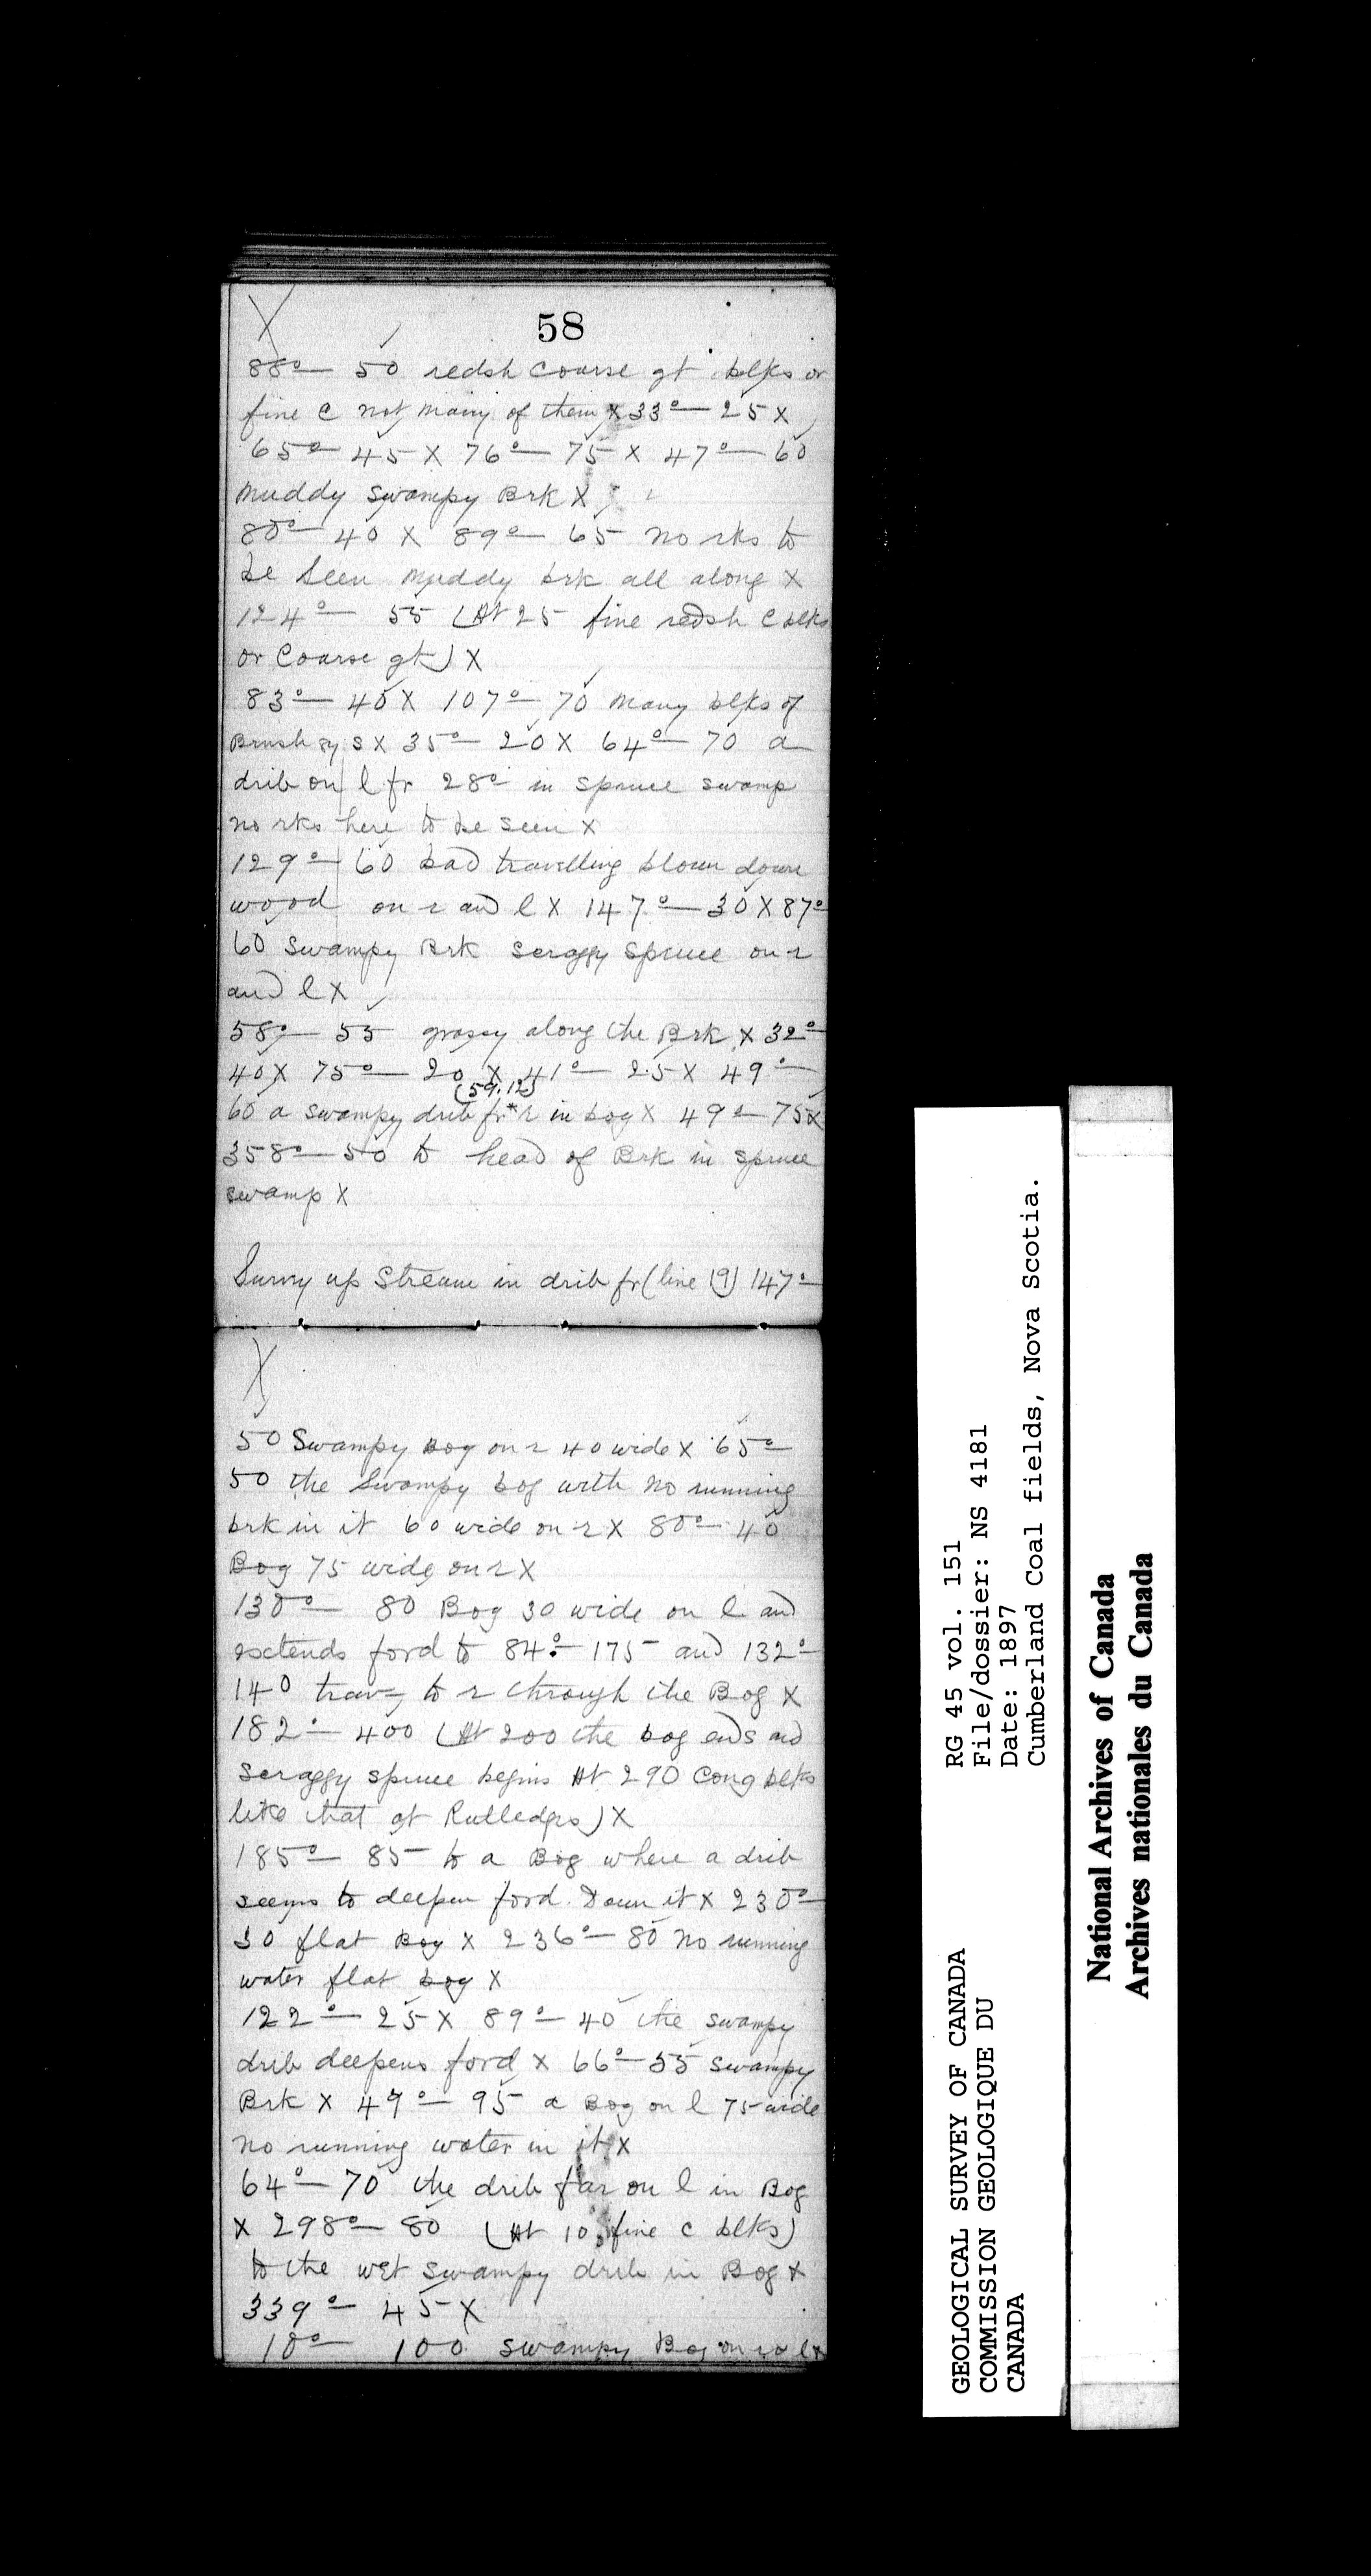 X
58
88° — 50 redsh coarse gt blks or
fine c not many of them x 33° — 25 x
65° — 45 x 76° — 75 x 47° — 60
muddy swampy Brk x
80° — 40 x 89° — 65 no rks to
be seen muddy brk all along x
124° — 55 (At 25 fine redsh c blks
or coarse gt) x
83° — 40 x 107° — 70 many blks of
Brush gy s x 35° — 20 x 64° — 70 a
drib on l fr 280 in spruce swamp
no rks here to be seen x
129° — 60 bad travelling blown down
wood on r and l x 147° — 30 x 87°
60 swampy Brk scraggy spruce on r
and l x
58° — 55 grassy along the Brk x 32° —
40 x 75° — 20 x 41° — 25 x 49° —
(59.12)
60 a swampy drib fr * r in bog x 49° — 75 x
358° — 50 to head of Brk in spruce
swamp x
Survy up Stream in drib fr (line 19) 147° —
X
50 Swampy Bog on r 40 wide x 65° —
50 the swampy bog with no running
brk in it 60 wide on r x 80° — 40
Bog 75 wide on r x
130° — 80 Bog 30 wide on l and
extends ford to 84° — 175 and 132° —
140 trav— to r through the Bog x
182° — 400 (At 200 the bog ends and
scraggy spruce begins At 290 Cong blks
like that at Rutledges) x
185° — 85 to a Bog where a drib
seems to deepen ford. Down it x 230° —
30 flat Bog x 236° — 80 no running
water flat bog x
122° — 25 x 89° — 40 the swampy
drib deepens ford x 66° — 55 swampy
Brk x 49° — 95 a Bog on l 75 wide
no running water in it x
64° — 70 the drib far on l in Bog
x 298° — 80 (At 10 fine c blks)
to the wet swampy drib in Bog x
339° — 45 x
10° — 100 swampy Bog on r & l x
RG 45 vol. 151
File/dossier: NS 4181
Date: 1897
Cumberland Coal fields, Nova Scotia.
GEOLOGICAL SURVEY OF CANADA
COMMISSION GEOLOGIQUE DU
CANADA
National Archives of Canada
Archives nationales du Canada